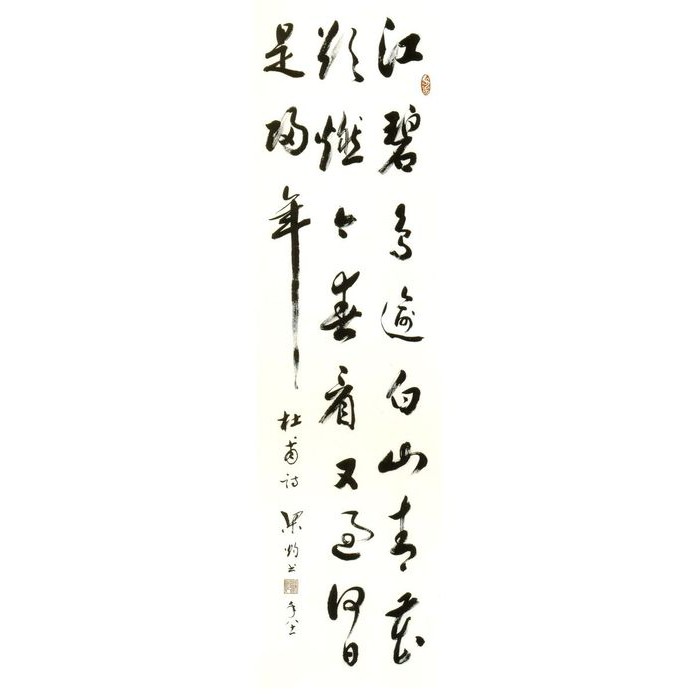 江碧鳥逾白山青花
欲燃今春看又過何日
是歸年
杜甫詩